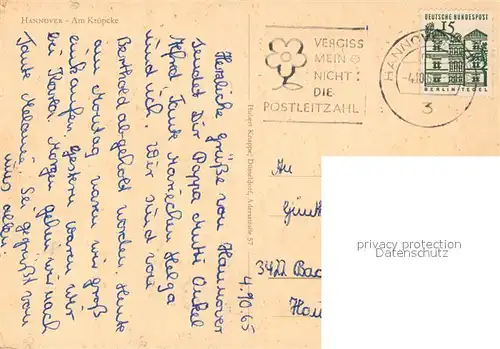 HANNOVER - Am Kröpcke
Herzliche Grüße von Hannover
sendet Dir Pappa Mutti Onkel
Alfred Tante Mariechen Helga
und ich. Wir sind von
Berthold abgeholt worden. Heute
am Montag waren wir groß
einkaufen, gestern waren wir
bei Morgen gehen wir nach
Tante Melanie. Sei gegrüßt von
uns allen.
Hubert Knuppe, Düsseldorf, Adersstraße 57
4.10.65
VERGISS
MEIN
NICHT:
DIE
POSTLEITZAHL
HANNOV
-4.10
3
DEUTSCHE BUNDESPOST
15
BERLIN-TEGEL
An
Günth
3422 Bad
Hau
privacy protection
Datenschutz